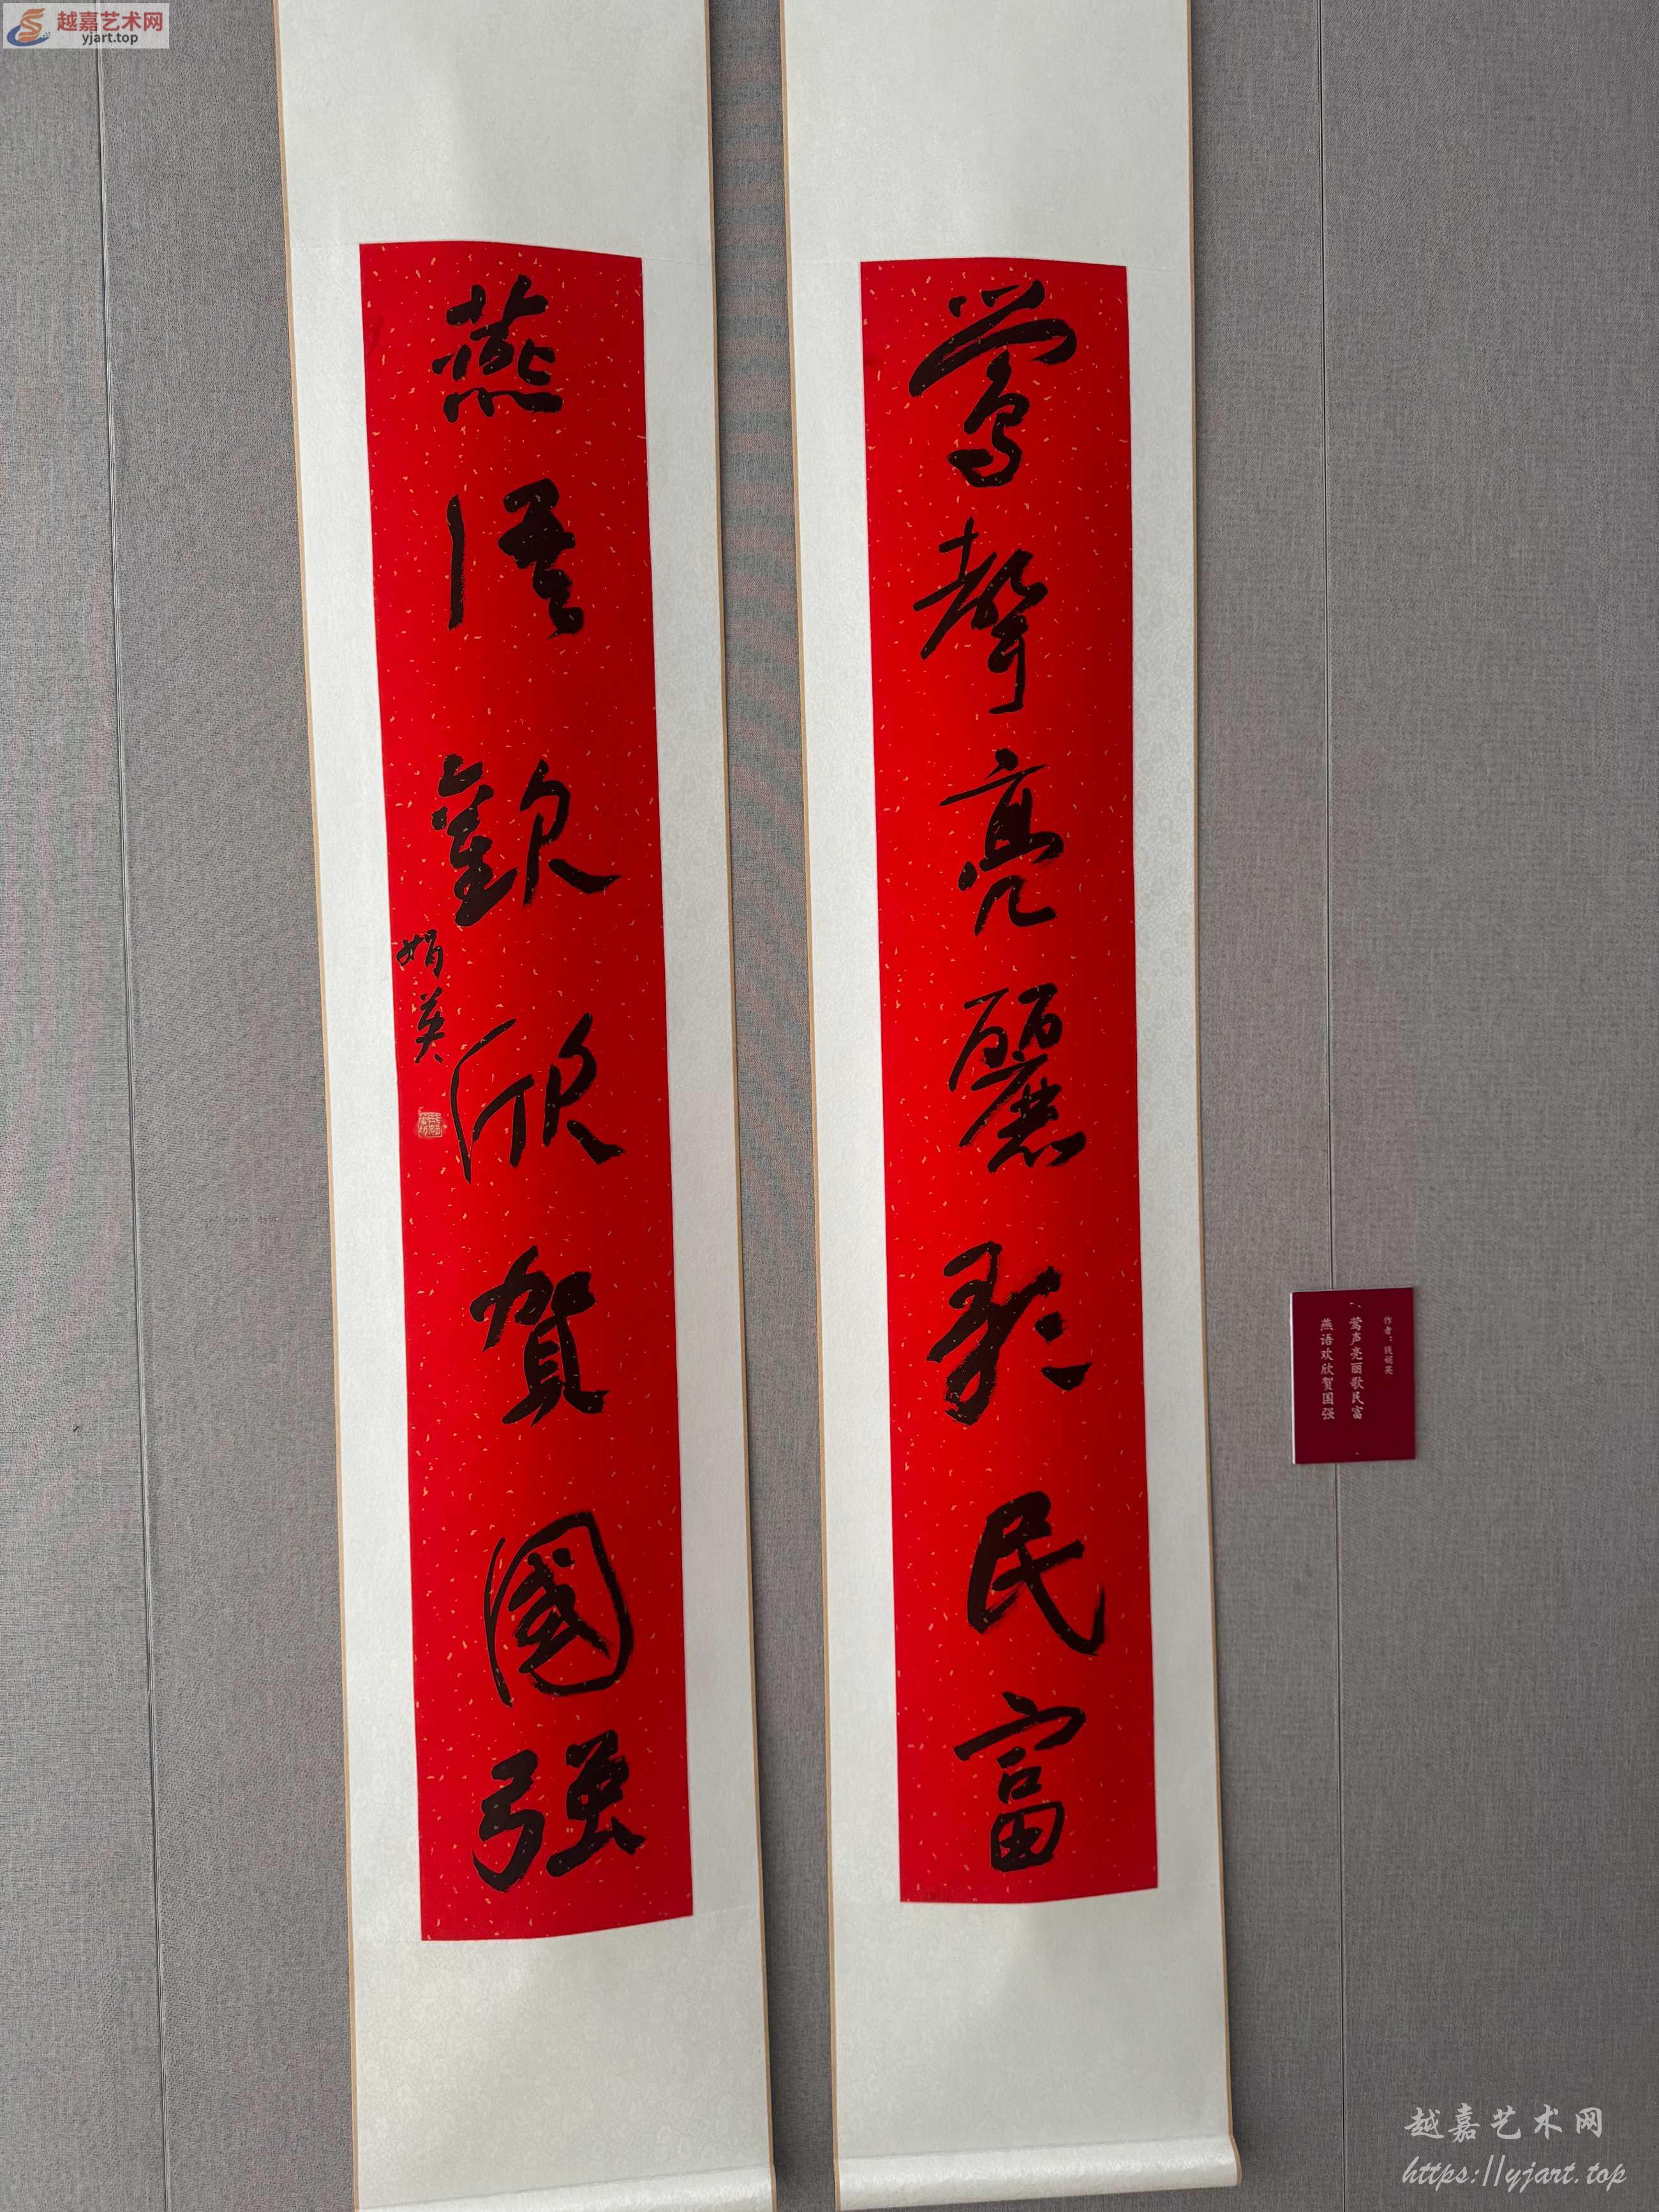 越嘉艺术网
yjart.top
鶯聲亮麗歌民富
燕语歡欣賀國强
娟英
作者：钱娟英
莺声亮丽歌民富
燕语欢欣贺国强
越嘉艺术网
https://yjart.top